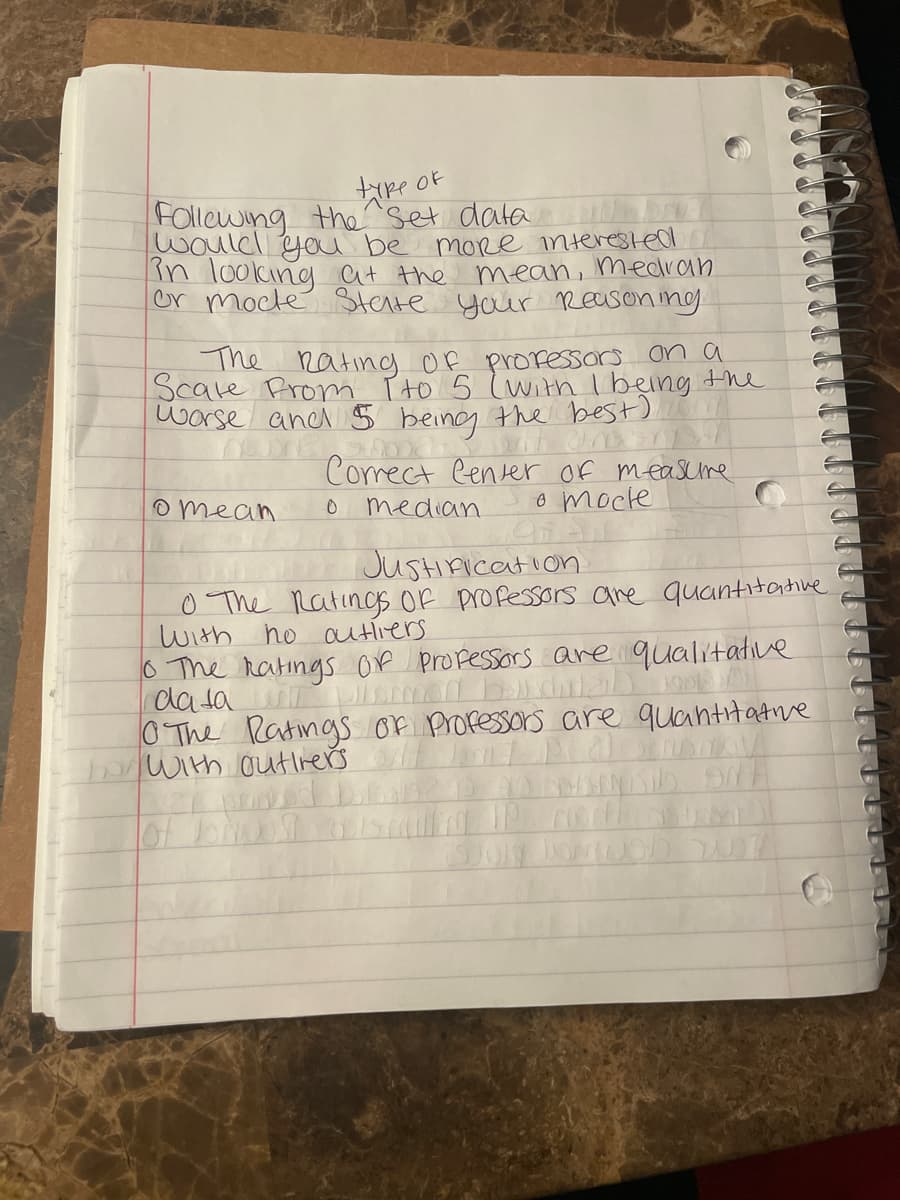 type of
Following the ^ set data
would you be more interested
in looking at the mean, median
or mode State your Reasoning
The rating of professors on a
Scale From 1 to 5 (with 1 being the
worse and 5 being the best)
Correct Center of measure
o mean o median o mode
Justification
o The Ratings of professors are quantitative
with no outliers
o The ratings of professors are qualitative
data
o The Ratings of professors are quantitative
with outliers